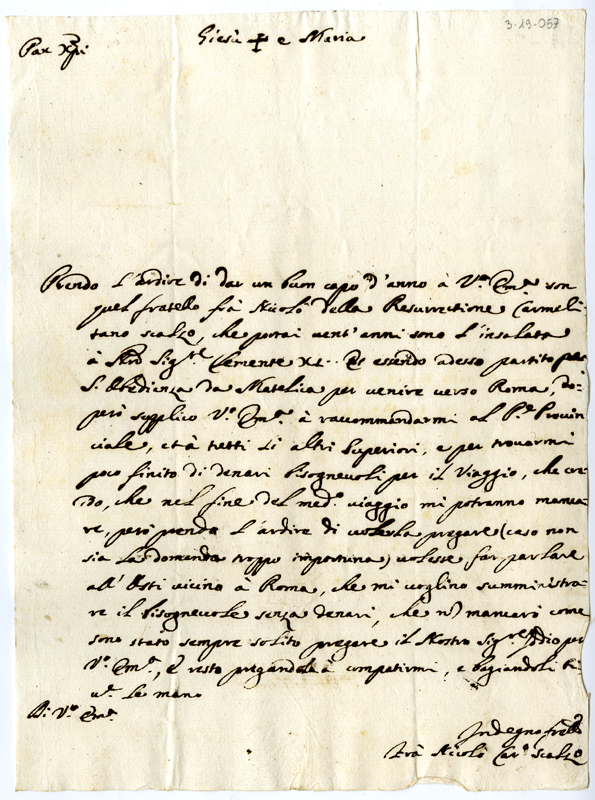 3-19-057
Giesù e Maria
Pax Xpi
Prendo l'ardire di dar un buon capo d'anno à V.ª Em.ª son
quel fratello frà Nicolò della Resurrectione Carmeli-
tano scalzo, che portai vent'anni sono l'insalata
à Nro Sig.re Clemente XI. essendo adesso partito per
S. Obedienza da Matelica per venire verso Roma, do-
però supplico V.ª Em.ª à raccommandarmi al P.e Provin
ciale, et à tutti li altri Superiori, e per trovarmi
poco finito di denari bisognevoli per il viaggio, che cre-
do, che nel fine del med.º viaggio mi potranno manca-
re, però prendo l'ardire di volerla pregare (caso non
sia la domanda troppo importuna) volesse far parlare
all'Osti vicino à Roma, che mi voglino sumministra-
re il bisognevole senza denari, che nõ mancarò come
sono stato sempre solito pregare il Nostro Sig.re Iddio per
V.ª Em.ª, e resto pregandola à compatirmi, e bagiandoli
le mano
Di V.ª Em.ª
Indegno frello
frà Nicolò Car.º scalzo